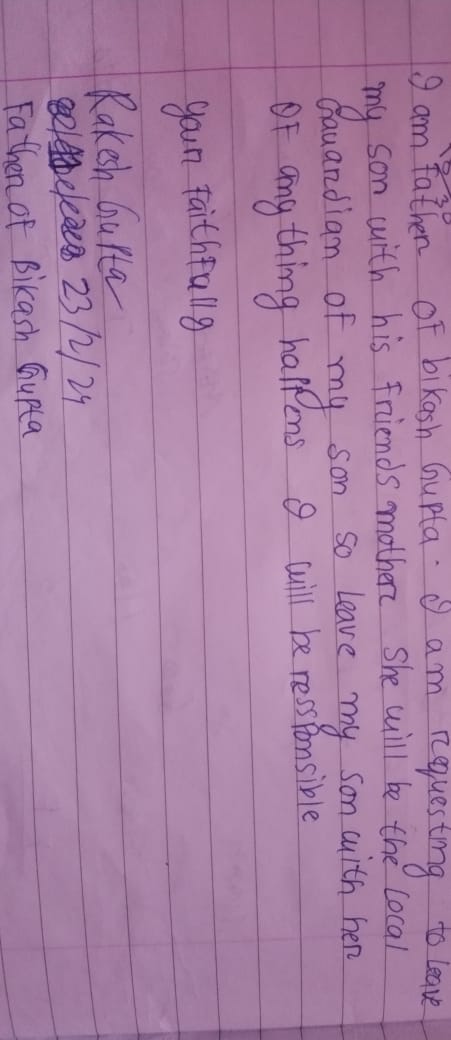 I am father of bikash Gupta. I am requesting to leave
my son with his friends mother She will be the Local
Gauardian of my son so Leave my son with her
OF any thing happens I will be ressponsible
your Faithfully
Rakesh Gupta
23/2/24
Father of Bikash Gupta